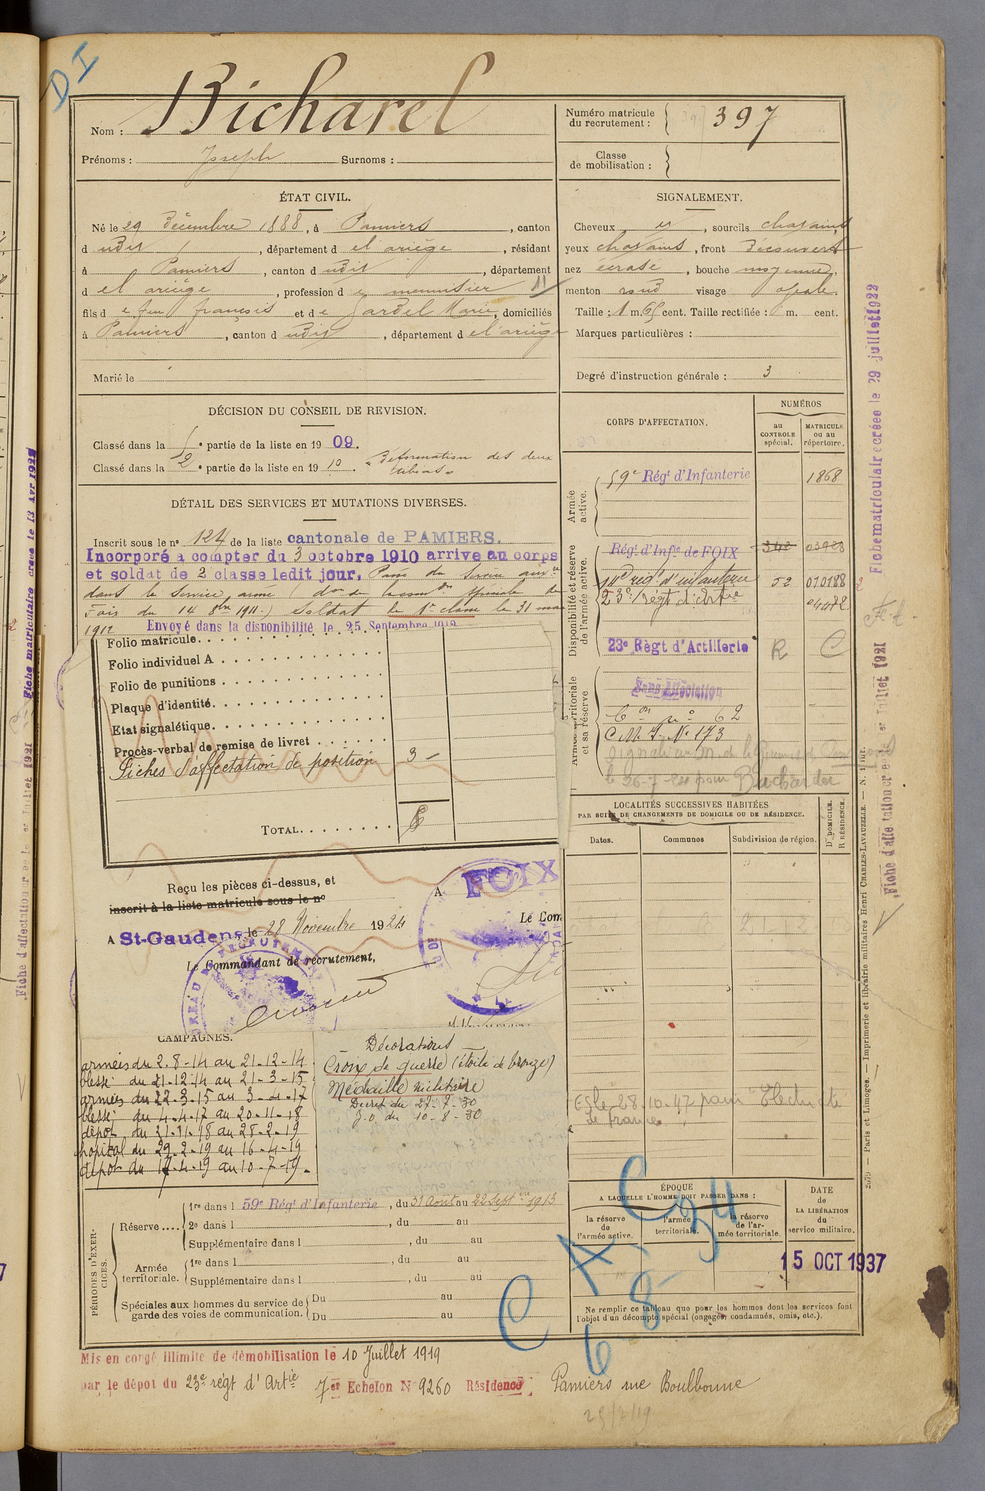 DI
Nom : Bicharel
Prénoms : Joseph Surnoms :
Numéro matricule du recrutement : 397
Classe de mobilisation :
ÉTAT CIVIL.
Né le 29 Décembre 1888, à Pamiers, canton
d udit, département d el'ariège, résidant
à Pamiers, canton d udit, département
d el'ariège, profession d e menuisier
fils d e feu françois et d e Gardel Marie, domiciliés
à Pamiers, canton d udit, département d el'ariège
Marié le
SIGNALEMENT.
Cheveux et, sourcils chatains
yeux chatains, front Découvert
nez écrasé, bouche moyenne,
menton rond visage ovale.
Taille : 1 m. 65 cent. Taille rectifiée : m. cent.
Marques particulières :
Degré d'instruction générale : 3
DÉCISION DU CONSEIL DE REVISION.
Classé dans la 5e partie de la liste en 1909.
Classé dans la 2e partie de la liste en 1910. "Déformation des deux tibias"
DÉTAIL DES SERVICES ET MUTATIONS DIVERSES.
Inscrit sous le no 124 de la liste cantonale de PAMIERS.
Incorporé à compter du 3 octobre 1910 arrivé au corps
et soldat de 2 classe ledit jour. Passé du Service auxre
dans le Service armé (don de la comon spéciale de
Foix du 14 9bre 1911.) Soldat de 1e classe le 31 mai
1912 Envoyé dans la disponibilité le 25 Septembre 1912
Folio matricule
Folio individuel A
Folio de punitions
Plaque d'identité
Etat signalétique
Procès-verbal de remise de livret
Fiches d'affectation de position 3
TOTAL
Reçu les pièces ci-dessus, et
inscrit à la liste matricule sous le no
A St-Gaudens, le 28 Novembre 1924
Le Commandant de recrutement,
A FOIX
Le Com
CORPS D'AFFECTATION.
NUMÉROS
au CONTROLE spécial.
MATRICULE ou au répertoire.
Armée active.
59e Régt d'Infanterie 1868
Disponibilité et réserve de l'armée active.
Régt d'Infie de FOIX
14e rég d'infanterie 52 010188
23e Régt d'artie
23e Règt d'Artillerie R C
Armée territoriale et sa réserve.
Sans Affectation
C.M.I. No 173
LOCALITÉS SUCCESSIVES HABITÉES
PAR SUITE DE CHANGEMENTS DE DOMICILE OU DE RÉSIDENCE.
Dates. Communes Subdivision de région. D. DOMICILE. R. RÉSIDENCE.
CAMPAGNES.
armées du 2-8-14 au 21-12-14
blessé du 21-12-14 au 21-3-15
armées du 22-3-15 au 3-4-17
blessé du 4-4-17 au 20-11-18
dépot du 21-11-18 au 28-2-19
hopital du 29-2-19 au 16-4-19
dépot du 17-4-19 au 10-7-19.
Décorations
Croix de guerre (étoile de bronze)
Médaille militaire
Décret du 27-7-30
J.O. du 10-8-30
Cs le 28.10.47 pour Electricité
de France
PÉRIODES D'EXERCICES.
Réserve .... 1re dans l 59e Régt d'Infanterie, du 31 Aout au 22 Sept 1913
2e dans l , du au
Supplémentaire dans l , du au
Armée territoriale. 1re dans l , du au
Supplémentaire dans l , du au
Spéciales aux hommes du service de garde des voies de communication. Du au
Du au
ÉPOQUE
A LAQUELLE L'HOMME DOIT PASSER DANS :
la réserve de l'armée active.
l'armée territoriale.
la réserve de l'armée territoriale.
DATE de LA LIBÉRATION du service militaire.
15 OCT 1937
Ne remplir ce tableau que pour les hommes dont les services font
l'objet d'un décompte spécial (engagés, condamnés, omis, etc.).
Mis en congé illimité de démobilisation le 10 Juillet 1919
par le dépot du 23e régt d'Artie 7er Echelon No 9260 Résidence : Pamiers rue Boulbonne
Fiche matriculaire créée le 29 juillet 1922
2579 — Paris et Limoges. — Imprimerie et librairie militaires Henri CHARLES-LAVAUZELLE.